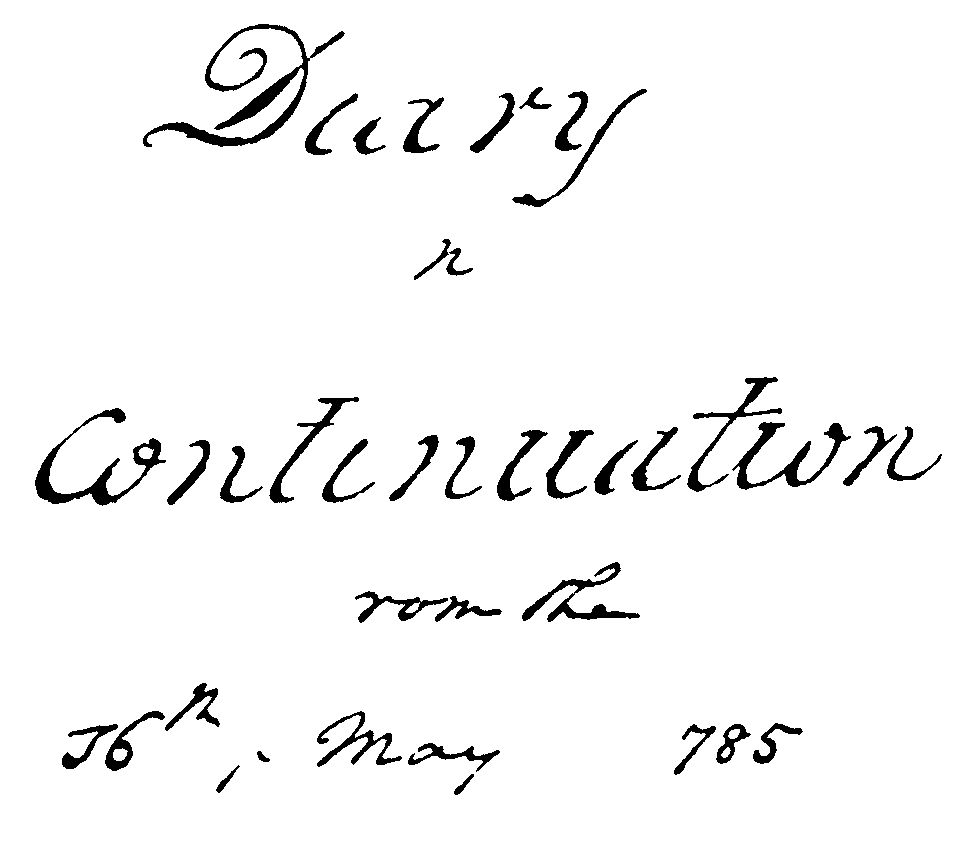 Diary
n
Continuation
rom the
J6th, May 785